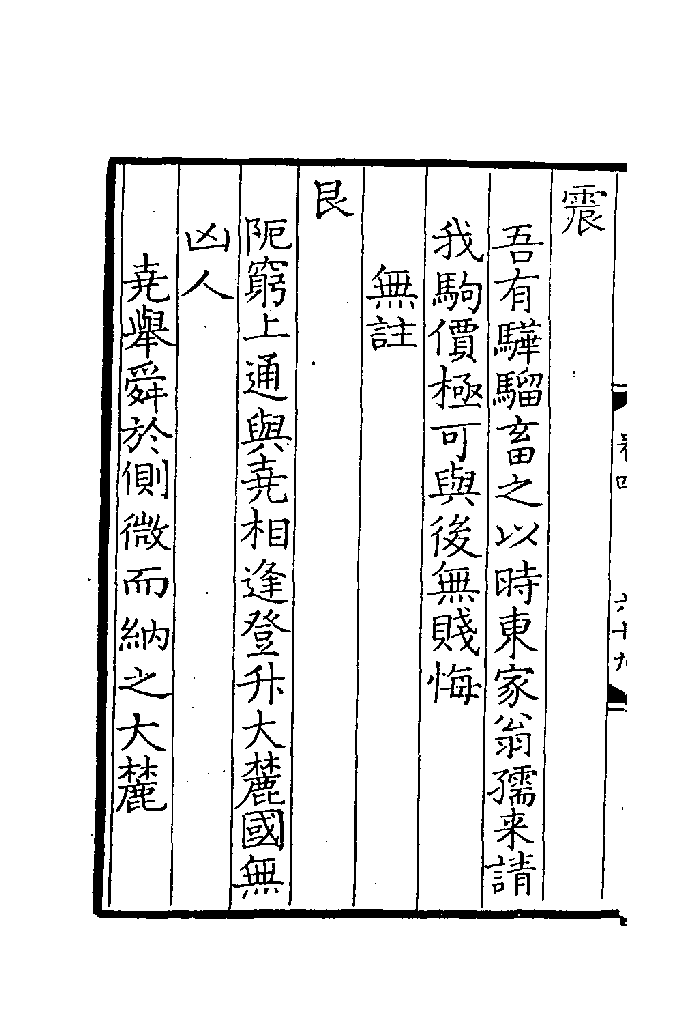 震
吾有驊騮畜之以時東家翁孺来請
我駒價極可與後無賤悔
無註
艮
阨窮上通與堯相逢登升大麓國無
凶人
堯舉舜於側微而納之大麓